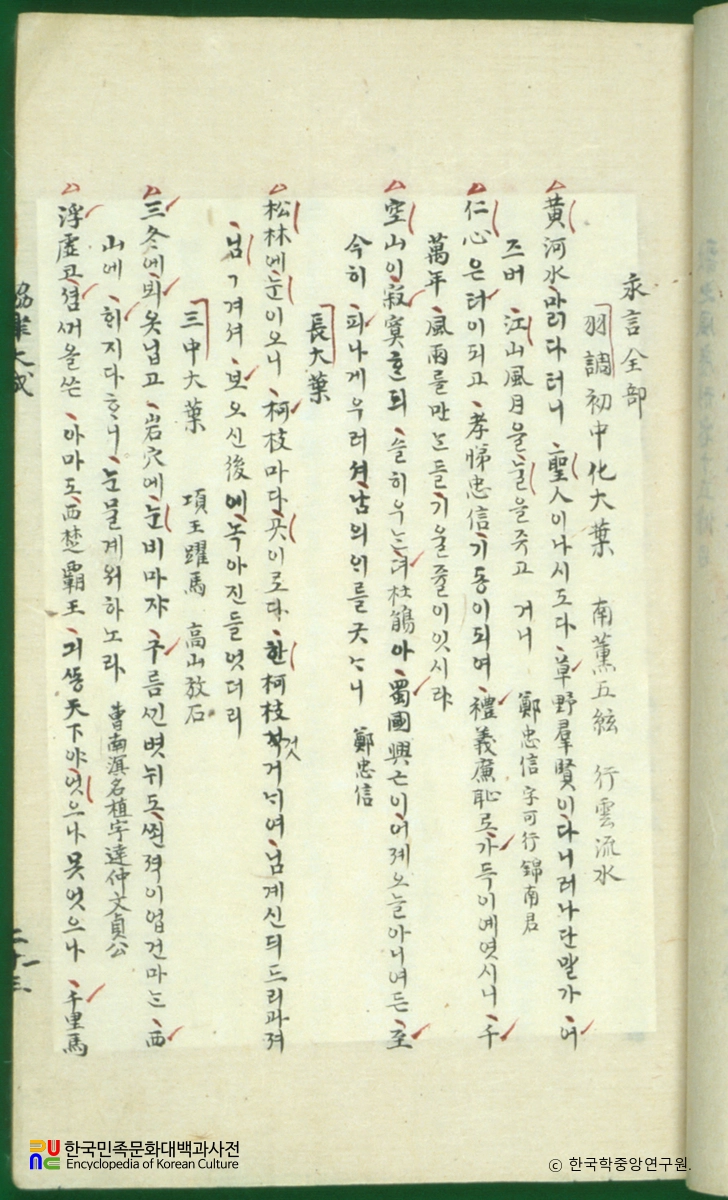 永言全部
羽調初中化大葉 南薰五絃 行雲流水
黃河水마리다터니 聖人이나시도다 草野羣賢이다니러나단말가 어
즈버 江山風月을눌을쥬고 거니 鄭忠信 字可行 錦南君
仁心은터이되고 孝悌忠信기동이되여 禮義廉恥로가득이예엿시니 千
萬年 風雨를만는들기울쥴이잇시랴
空山이寂寞흔듸 슬히우는 杜鵑아 蜀國興亡이어졔오늘아니여든 至
今히 피나게우러셔남의이를긋니 鄭忠信
長大葉
松林에눈이오니 柯枝마다곳이로다 한柯枝것거너여 님계신듸드리과져
님겨셔 보오신後에녹아진들엇더리
三中大葉 項王躍馬 高山放石
三冬에뵈옷닙고 岩穴에눈비마쟈 구름낀볏뉘도쐰젹이업건마는 西
山에 희지다니 눈물계워하노라 曺南溟名植字達仲文貞公
浮虛코셤써올쓴 아마도西楚覇王 긔똥天下야엇으나못엇으나 千里馬
協律大成
二十三
한국민족문화대백과사전
Encyclopedia of Korean Culture
ⓒ 한국학중앙연구원.